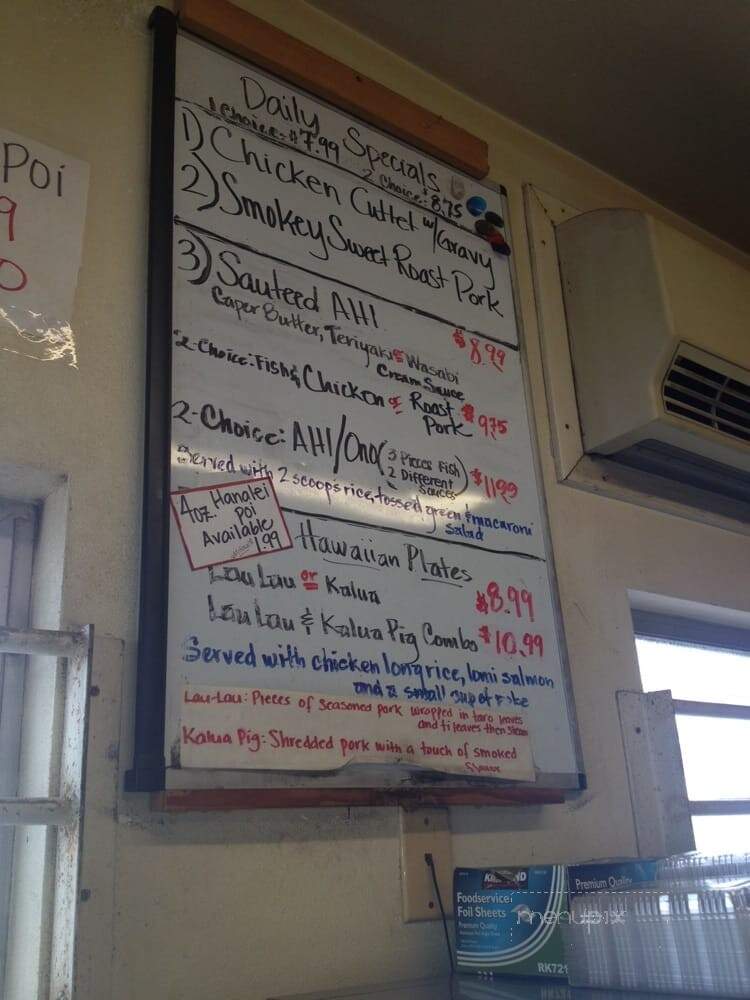 Daily Specials
1 Choice: $7.99 2 Choice: $8.75
1) Chicken Cuttet w/Gravy
2) Smokey Sweet Roast Pork
3) Sauteed AHI $8.99
Caper Butter, Teriyaki & Wasabi
Cream Sauce
2-Choice: Fish & Chicken or Roast
Pork $9.75
2-Choice: AHI/Ono (3 Pieces Fish
2 Different
Sauces) $11.99
Served with 2 scoops rice, tossed green & macaroni
Salad
4oz. Hanalei
Poi
Available
1.99
Hawaiian Plates
Lau Lau or Kalua $8.99
Lau Lau & Kalua Pig Combo $10.99
Served with chicken long rice, lomi salmon
and a small cup of Poke
Lau-Lau: Pieces of seasoned pork wrapped in taro leaves
and ti leaves then steam
Kalua Pig: Shredded pork with a touch of smoked
Poi
9
0
KIRKLAND
Foodservice
Foil Sheets
Premium Quality
RK721
Premium Quality
menupix